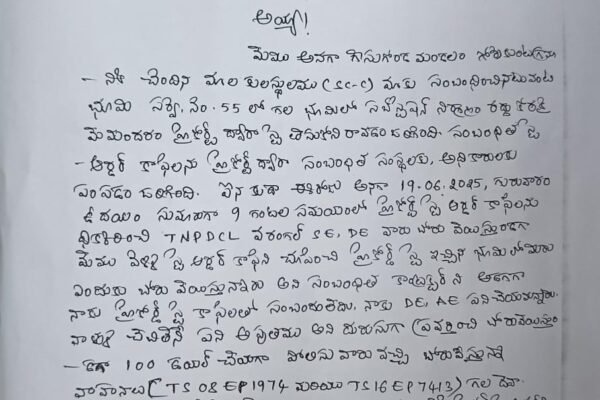 అయ్యా!
మేము అనగా గీసుకొండ మండలం
- నికి చెందిన మాల కులస్థులము (SC-C) మాకు సంబంధించినటువంటి
భూమి సర్వే. నెం. 55 లో గల భూమిలో సబ్‌స్టేషన్ నిర్మాణం రద్దు కొరకై
మేమందరం హైకోర్ట్ ద్వారా స్టే తీసుకొని రావడం జరిగింది. సంబంధిత స్టే
- ఆర్డర్ కాపీలను హైకోర్ట్ ద్వారా సంబంధిత సంస్థలకు, అధికారులకు
పంపడం జరిగింది. అనగా 19.06.2025, గురువారం
ఉదయం సుమారుగా 9 గంటల సమయంలో హైకోర్ట్ స్టే ఆర్డర్ కాపీలను
ధిక్కరించి TNPDCL వరంగల్ SE, DE వారు బోరు వేయిస్తుండగా
మేము వెళ్ళి స్టే ఆర్డర్ కాపీని చూపించి హైకోర్ట్ స్టే ఇచ్చిన భూమిలో మీరు
ఎందుకు బోరు వేయిస్తున్నారు అని సంబంధిత కాంట్రాక్టర్ ని అడగగా
నాకు హైకోర్ట్ స్టే కాపీలతో సంబంధంలేదు. నాకు DE, AE పని
వాళ్ళు చెబితేనే పని ఆపుతము అని దురుసుగా ప్రవర్తించి
- డగా 100 డయల్ చేయగా పోలీసు వారు వచ్చి
వాహనాలు (TS 08 EP 1974 మరియు TS 16 EP 7413) గల